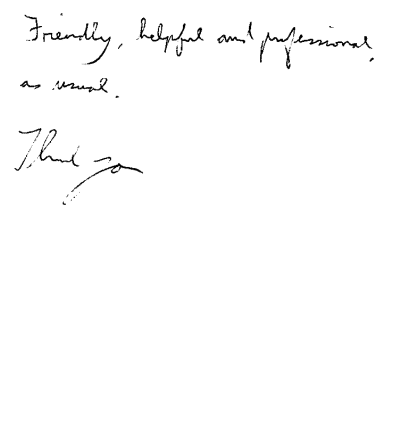 Friendly, helpful and professional,
as usual.
Thank you